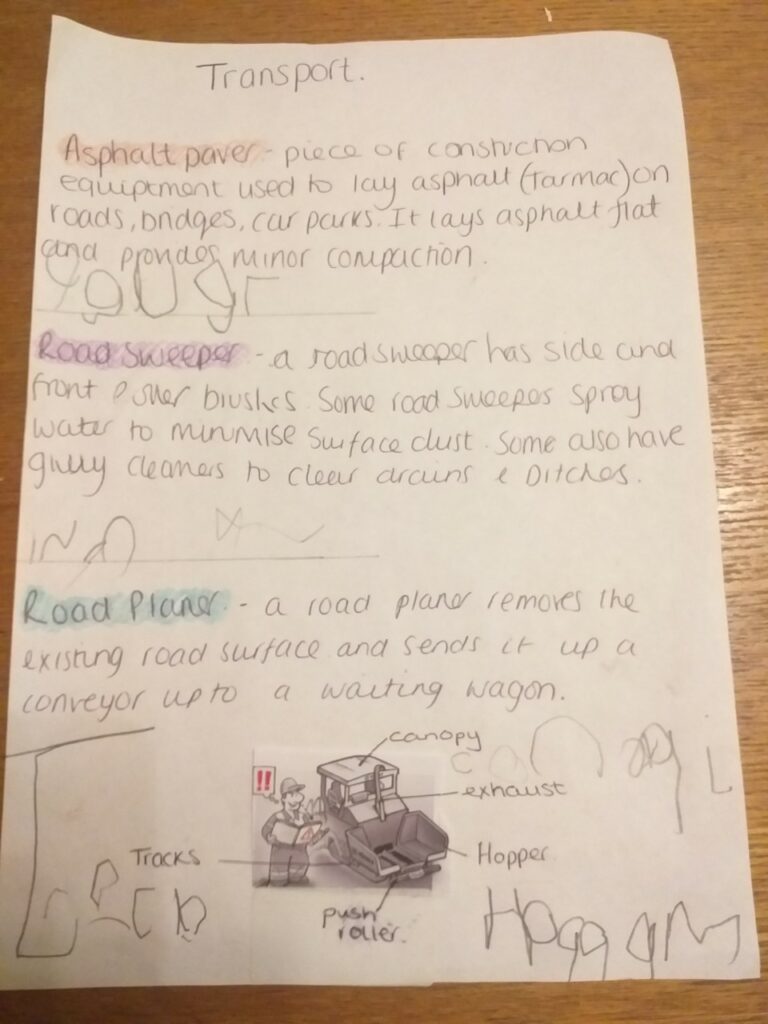 Transport.
Asphalt paver - piece of construction
equiptment used to lay asphalt (Tarmac) on
roads, bridges, car parks. It lays asphalt flat
and provides minor compaction.
Road sweeper - a road sweeper has side and
front brushes. Some road sweepes spray
water to minimise surface dust. Some also have
gully cleaners to clear drains & Ditches.
Road Planer - a road planer removes the
existing road surface and sends it up a
conveyor up to a waiting wagon.
canopy
!!
exhaust
Tracks
Hopper
push
roller.